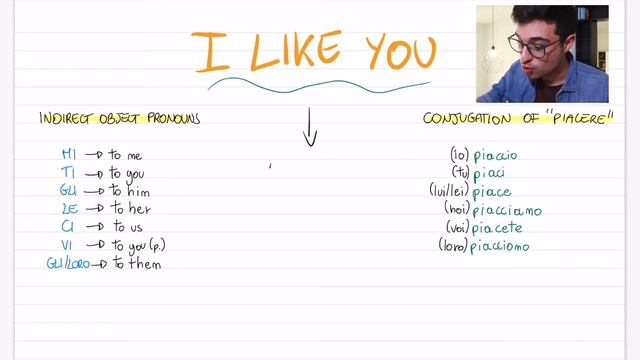 I LIKE YOU
INDIRECT OBJECT PRONOUNS
MI → to me
TI → to you
GLI → to him
LE → to her
CI → to us
VI → to you (p.)
GLI/LORO → to them
CONJUGATION OF "PIACERE"
(io) piaccio
(tu) piaci
(lui/lei) piace
(noi) piacciamo
(voi) piacete
(loro) piacciono